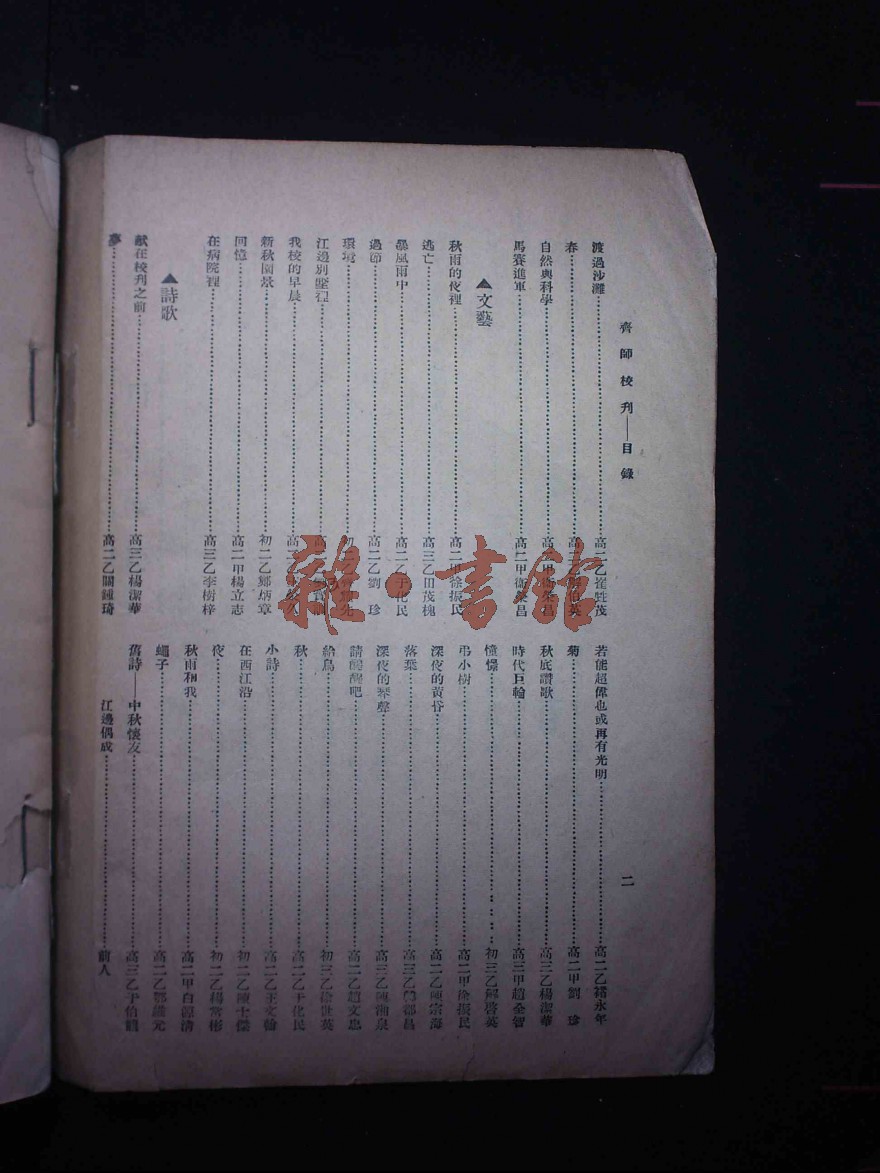 齊師校刊——目錄
二
渡過沙灘…………高二乙崔甡茂
春…………
自然與科學…………高二甲衛榮昌
馬賽進軍…………高二甲衛榮昌
▲文藝
秋雨的夜裡…………高二甲徐振民
逃亡…………高三乙田茂槐
暴風雨中…………高二乙于化民
過節…………高二乙劉　珍
環境…………初二乙
江邊別墅裡…………
我校的早晨…………高
新秋園景…………初二乙鄭炳章
回憶…………高二甲楊立志
在病院裡…………高三乙李樹梓
▲詩歌
献在校刊之前…………高三乙楊潔華
夢…………高二乙關鍾琦
若能超偉也或再有光明…………高二乙褚永年
菊…………高二甲劉　珍
秋底讚歌…………高三乙楊潔華
時代巨輪…………高三甲趙全智
憧憬…………初三乙解啓英
弔小樹…………高二甲徐振民
深夜的黃昏…………高二乙陳宗海
落葉…………高三乙都昌
深夜的琴聲…………高三乙陳湘泉
請醒醒吧…………高二乙趙文忠
給鳥…………初三乙徐世英
秋…………高二乙于化民
小詩…………高二乙王文翰
在西江沿…………初二乙陳士傑
夜…………初二乙楊常彬
秋雨和我…………高二甲白源清
蠅子…………高二乙鄂維元
舊詩——中秋懷友…………高三乙于伯
江邊偶成…………前人
雜·書館